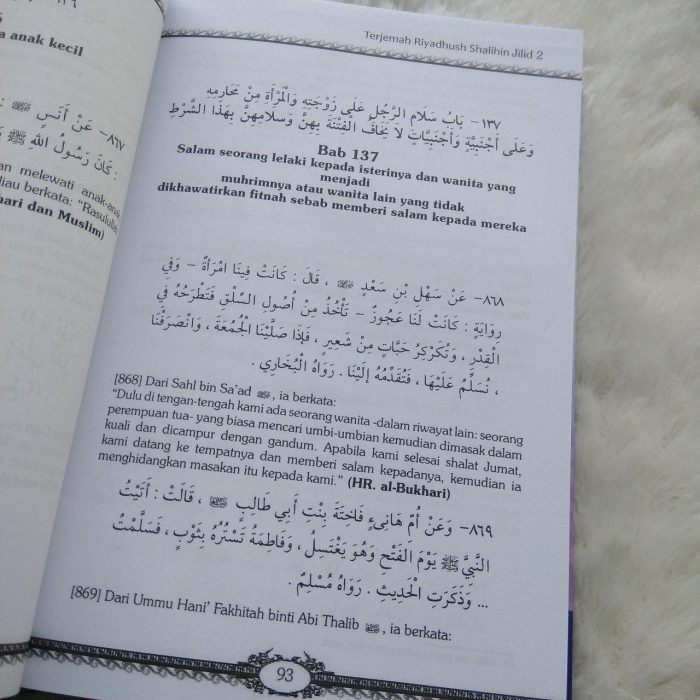 a anak kecil
٨٦٧- عَنْ أَنَسٍ ﷺ :
كَانَ رَسُولُ اللهِ ﷺ
n melewati anak-anak
liau berkata: "Rasulullah
hari dan Muslim)
Terjemah Riyadhush Shalihin Jilid 2
١٣٧- بَابُ سَلَامِ الرَّجُلِ عَلَى زَوْجَتِهِ وَالْمَرْأَةِ مِنْ مَحَارِمِهِ
وَعَلَى أَجْنَبِيَّةٍ وَأَجْنَبِيَّاتٍ لَا يَخَافُ الْفِتْنَةَ بِهِنَّ وَسَلَامِهِنَّ بِهَذَا الشَّرْطِ
Bab 137
Salam seorang lelaki kepada isterinya dan wanita yang
menjadi
muhrimnya atau wanita lain yang tidak
dikhawatirkan fitnah sebab memberi salam kepada mereka
٨٦٨- عَنْ سَهْلِ بْنِ سَعْدٍ ، قَالَ : كَانَتْ فِينَا امْرَأَةٌ – وَفِي
رِوَايَةٍ : كَانَتْ لَنَا عَجُوزٌ – تَأْخُذُ مِنْ أُصُولِ السِّلْقِ فَتَطْرَحُهُ فِي
الْقِدْرِ ، وَتُكَرْكِرُ حَبَّاتٍ مِنْ شَعِيرٍ ، فَإِذَا صَلَّيْنَا الْجُمُعَةَ ، وَانْصَرَفْنَا
، نُسَلِّمُ عَلَيْهَا ، فَتُقَدِّمُهُ إِلَيْنَا . رَوَاهُ الْبُخَارِي .
[868] Dari Sahl bin Sa'ad , ia berkata:
"Dulu di tengah-tengah kami ada seorang wanita -dalam riwayat lain: seorang
perempuan tua- yang biasa mencari umbi-umbian kemudian dimasak dalam
kuali dan dicampur dengan gandum. Apabila kami selesai shalat Jumat,
kami datang ke tempatnya dan memberi salam kepadanya, kemudian ia
menghidangkan masakan itu kepada kami." (HR. al-Bukhari)
٨٦٩- وَعَنْ أُمِّ هَانِىءٍ فَاخِتَةَ بِنْتِ أَبِي طَالِبٍ ، قَالَتْ : أَتَيْتُ
النَّبِيَّ ﷺ يَوْمَ الْفَتْحِ وَهُوَ يَغْتَسِلُ ، وَفَاطِمَةُ تَسْتُرُهُ بِثَوْبٍ ، فَسَلَّمْتُ
... وَذَكَرَتِ الْحَدِيثَ . رَوَاهُ مُسْلِمٌ .
[869] Dari Ummu Hani' Fakhitah binti Abi Thalib , ia berkata:
93